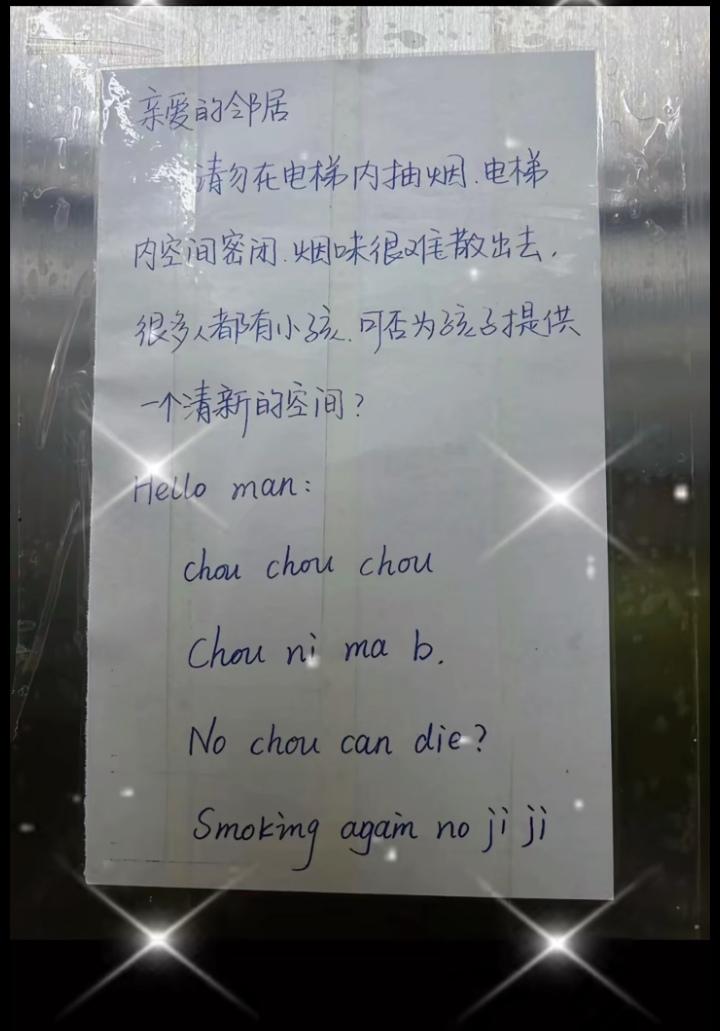 亲爱的邻居
请勿在电梯内抽烟.电梯
内空间密闭.烟味很难散出去.
很多人都有小孩.可否为孩子提供
一个清新的空间?
Hello man:
chou chou chou
Chou ni ma b.
No chou can die?
Smoking again no ji ji